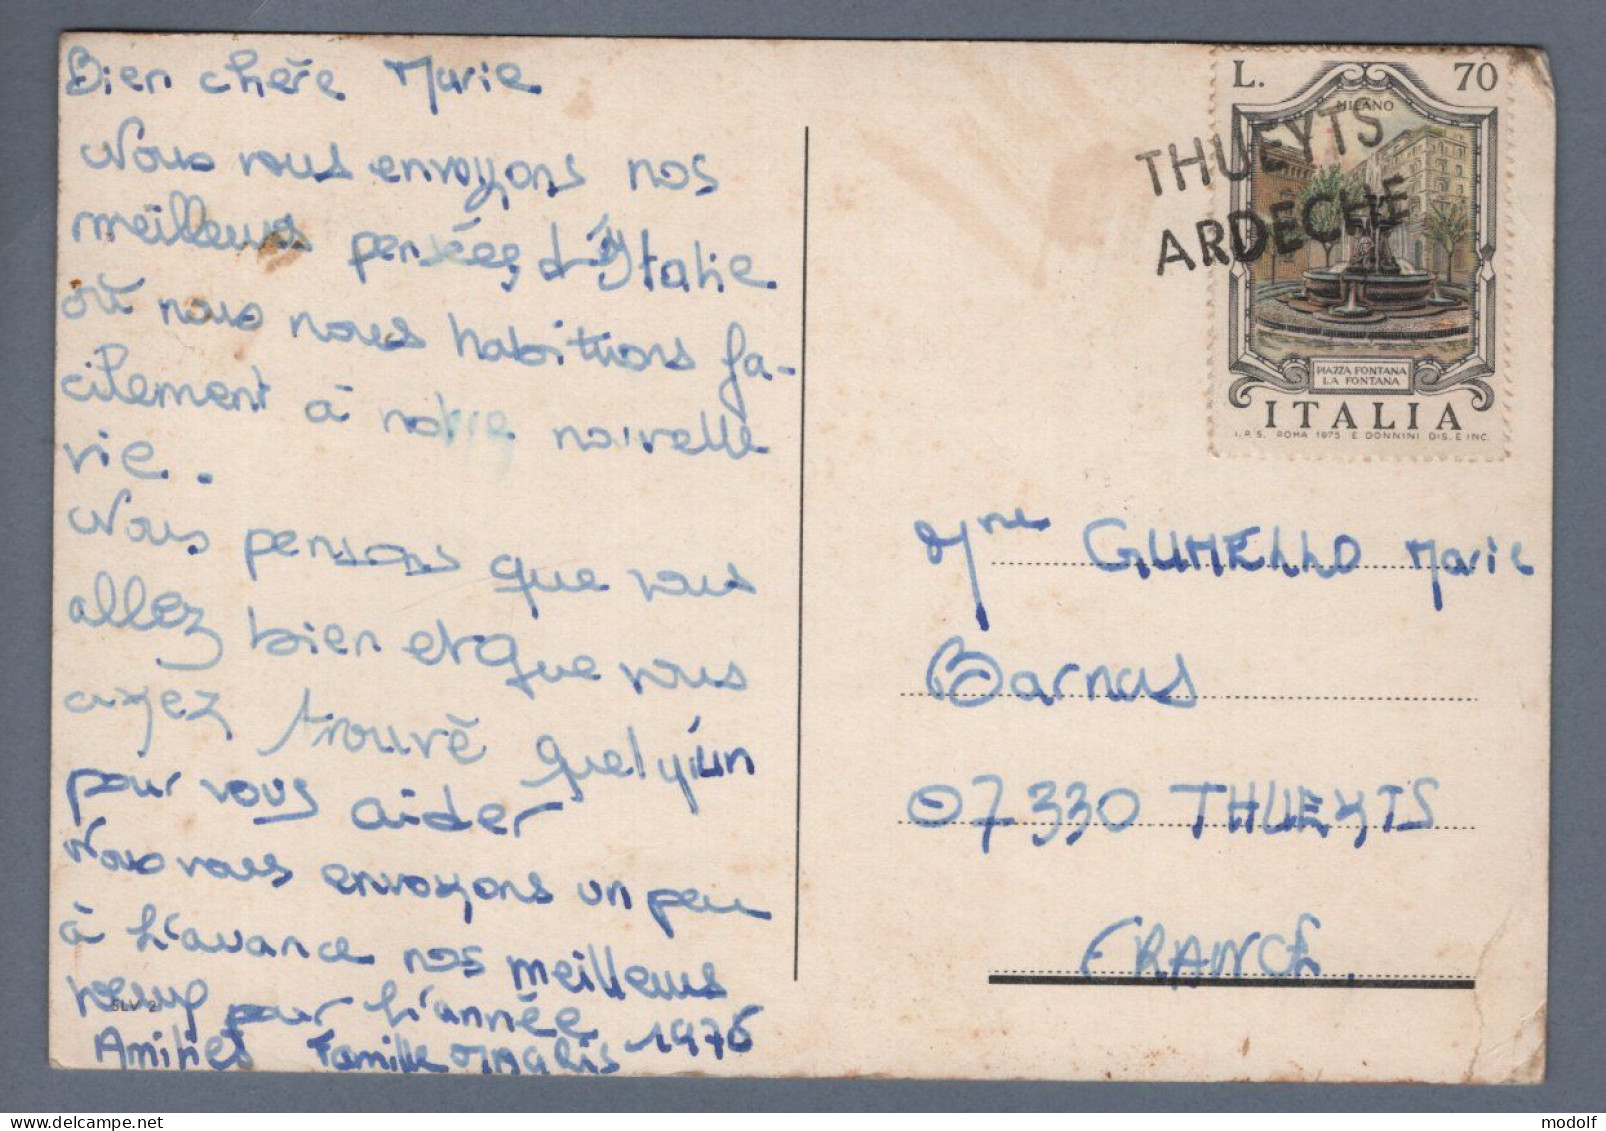 Bien chère Marie
Nous vous envoyons nos
meilleures pensées d'Italie
où nous nous habituons fa-
cilement à notre nouvelle
vie.
Nous pensons que vous
allez bien et que vous
ayez trouvé quelqu'un
pour vous aider
Nous vous envoyons un peu
à l'avance nos meilleurs
vœux pour l'année
SLV 2
Amitiés Famille 1976
L. 70
MILANO
THUEYTS
ARDECHE
PIAZZA FONTANA
LA FONTANA
ITALIA
I.P.S. ROMA 1975 E DONNINI DIS. E INC.
Mme GUMELLO Marie
Barnas
07330 THUEYTS
FRANCE.
modolf